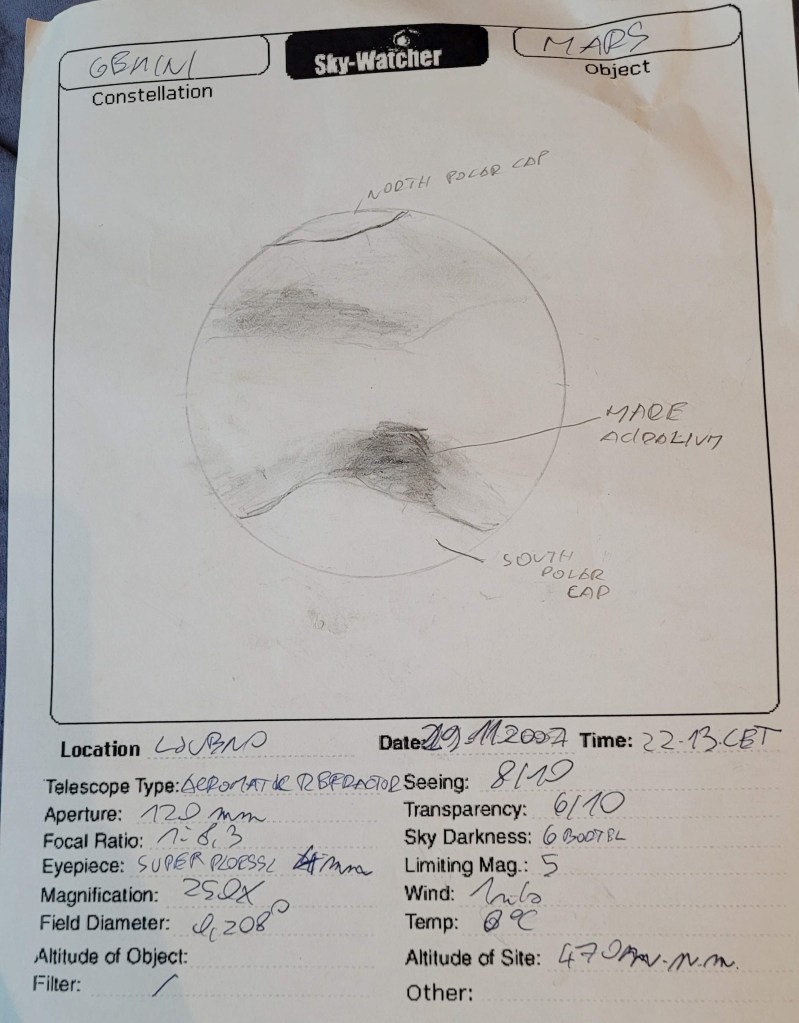 GEMINI
Sky-Watcher
MARS
Constellation
Object
NORTH POLAR CAP
MARE
ACIDALIUM
SOUTH
POLAR
CAP
Location LJUBNO
Date: 29.11.2007 Time: 22.13.CET
Telescope Type: ACROMATIC REFRACTOR
Seeing: 8/10
Aperture: 120 mm
Transparency: 6/10
Focal Ratio: 1:8,3
Sky Darkness: 6
Eyepiece: SUPER PLOESSL 4mm
Limiting Mag.: 5
Magnification: 250X
Wind:
Field Diameter: 0,208°
Temp: 0°C
Altitude of Object:
Altitude of Site: 470 m.n.m.
Filter: /
Other: